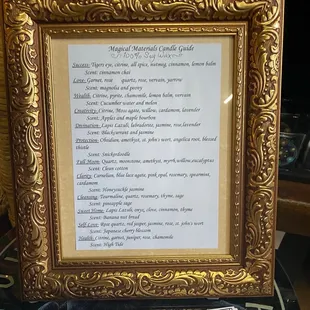 Magical Materials Candle Guide
100% Soy
Success: Tigers eye, citrine, all spice, nutmeg, cinnamon, lemon balm
Scent: cinnamon chai
Love: Garnet, rose quartz, rose, vervain, yarrow
Scent: magnolia and peony
Wealth: Citrine, Pyrite, chamomile, lemon balm, vervain
Scent: Cucumber water and melon
Creativity: Citrine, Moss agate, willow, cardamon, lavender
Scent: Apples and maple bourbon
Divination: Lapis Lazuli, labradorite, jasmine, rose, lavender
Scent: Blackcurrant and jasmine
Protection: Obsidian, amethyst, st. john's wort, angelica root, blessed
thistle
Scent: Snickerdoodle
Full Moon: Quartz, moonstone, amethyst, myrrh, willow, eucalyptus
Scent: Clean cotton
Clarity: Carnelian, blue lace agate, pink opal, rosemary, spearmint,
cardamon
Scent: Honeysuckle jasmine
Cleansing: Tourmaline, quartz, rosemary, thyme, sage
Scent: pineapple sage
Sweet Home: Lapis Lazuli, onyx, clove, cinnamon, thyme
Scent: Banana nut bread
Self Love: Rose quartz, red jasper, jasmine, rose, st. john's wort
Scent: Japanese cherry blossom
Health: Citrine, garnet, juniper, rose, chamomile
Scent: High Tide